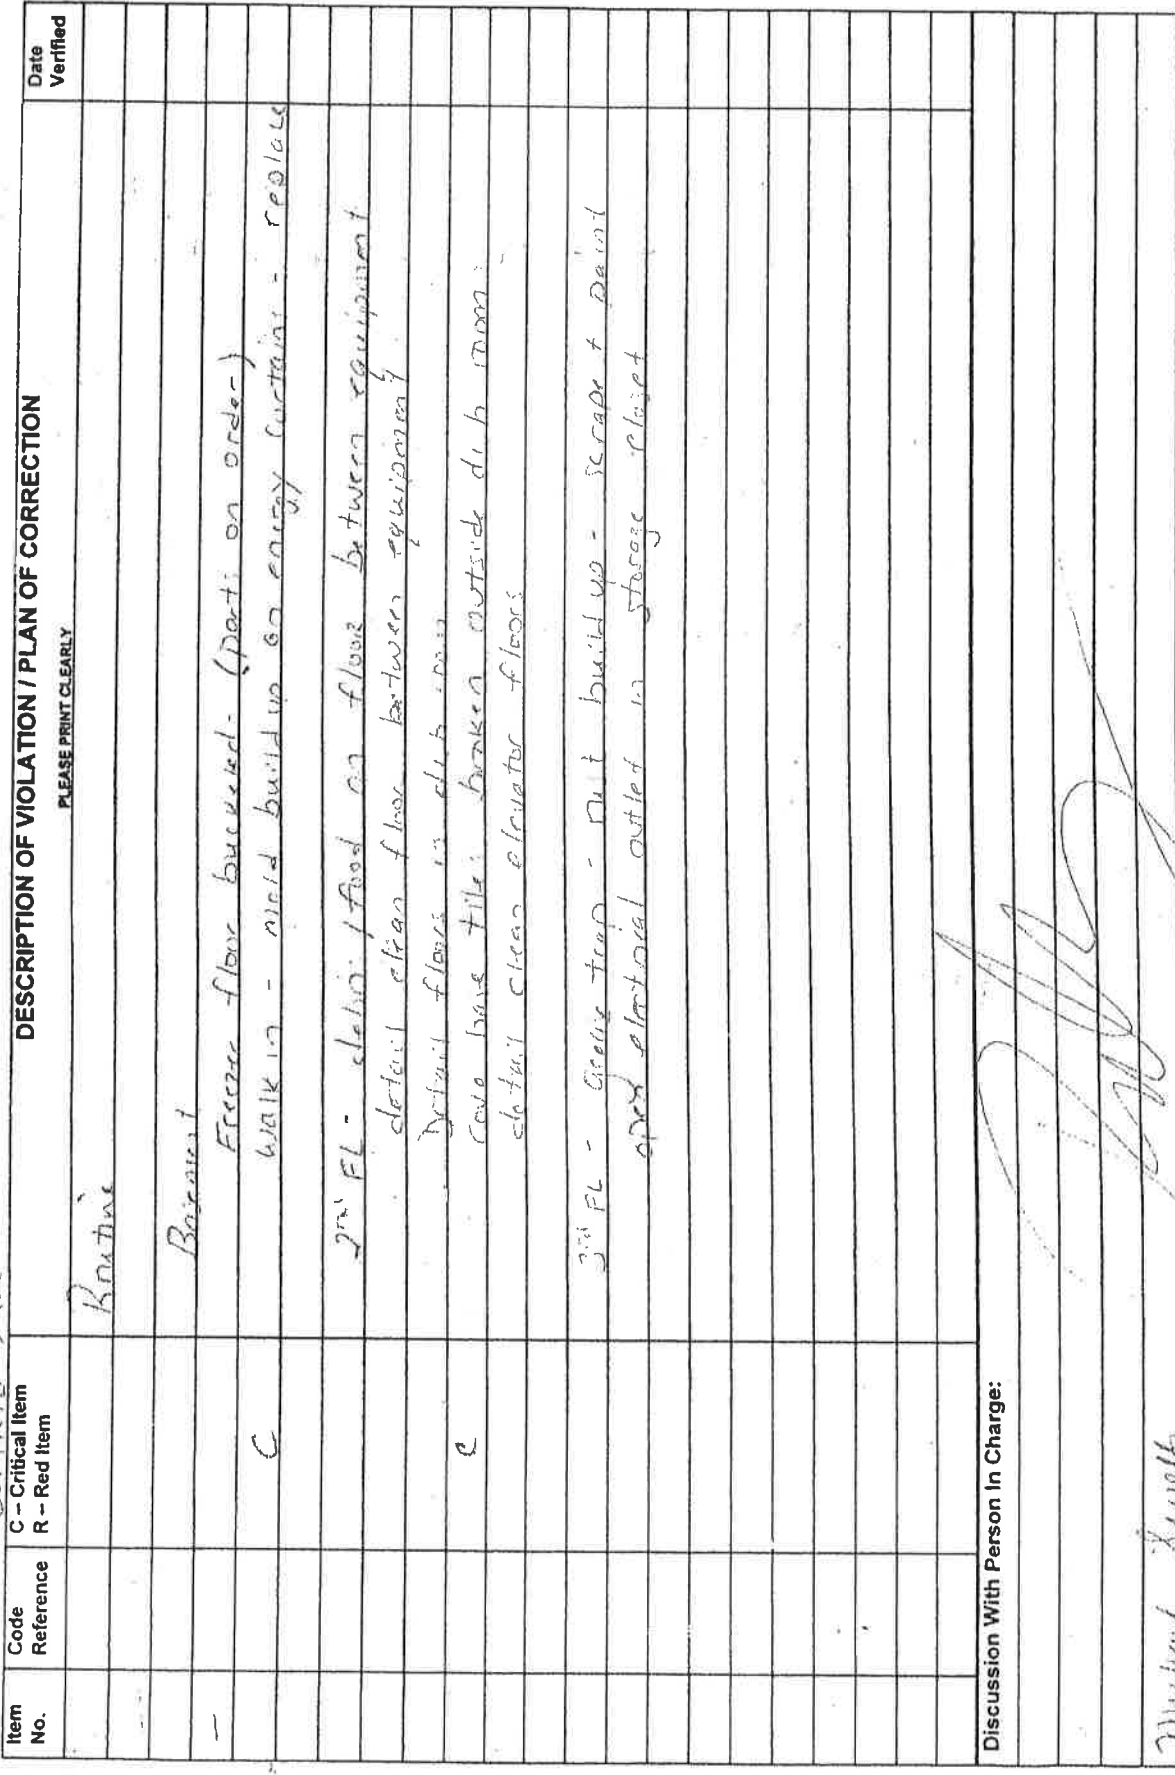 Item No.
Code Reference
C – Critical Item
R – Red Item
DESCRIPTION OF VIOLATION / PLAN OF CORRECTION
PLEASE PRINT CLEARLY
Date Verified
Routine
Basement
Freezer floor buckeled - (parts on order)
C walk in - mold build up on energy curtains - replace
2nd FL - debris / food on floor between equipment
detail clean floor between equipment
Detail floors in dish room
C Cove base tiles broken outside dish room
detail clean elevator floors
3rd FL - Grease trap - rust build up - scrape + paint
open electrical outlet in storage closet
Discussion With Person In Charge: